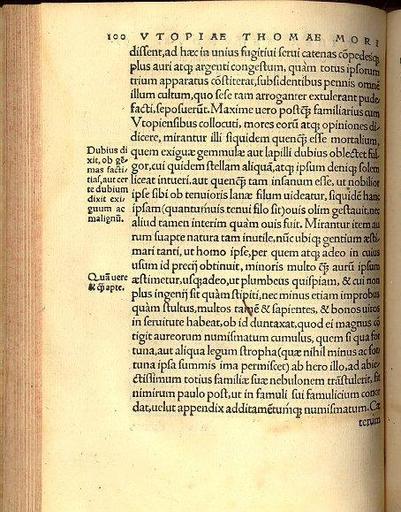 100 VTOPIAE THOMAE MORI
dissent, ad hæc in unius fugitiui serui catenas cõpedesq;
plus auri atq; argenti congestum, quàm totus ipsorum
trium apparatus cõstiterat, subsidentibus pennis omnẽ
illum cultum, quo sese tam arroganter extulerant pude
facti, seposuerũt. Maxime uero postq̃ familiarius cum
Vtopiensibus collocuti, mores eorũ atq; opiniones di-
dicere, mirantur illi siquidem quenq̃ esse mortalium,
Dubius di
xit, ob gẽ-
mas facti-
tias, aut cer
te dubium
dixit exi-
guum ac
malignũ.
quem exiguæ gemmulæ aut lapilli dubius oblectet ful-
gor, cui quidem stellam aliquã, atq; ipsum deniq; solem
liceat intueri. aut quenq̃ tam insanum esse, ut nobilior
ipse sibi ob tenuioris lanæ filum uideatur, siquidẽ hanc
ipsam (quantumuis tenui filo sit) ouis olim gestauit, nec
aliud tamen interim quàm ouis fuit. Mirantur item au
rum suapte natura tam inutile, nũc ubiq; gentium æsti-
mari tanti, ut homo ipse, per quem atq; adeo in cuius
usum id precij obtinuit, minoris multo q̃ aurũ ipsum
Quã uere
& q̃ apte.
æstimetur, usq; adeo, ut plumbeus quispiam, & cui non
plus ingenij sit quàm stipiti, nec minus etiam improbus
quàm stultus, multos tamẽ & sapientes, & bonos uiros
in seruitute habeat, ob id duntaxat, quod ei magnus cõ
tigit aureorum numismatum cumulus, quem si qua for
tuna, aut aliqua legum stropha (quæ nihil minus ac for
tuna ipsa summis ima permiscet) ab hero illo, ad abie-
ctissimum totius familiæ suæ nebulonem trãstulerit, fit
nimirum paulo post, ut in famuli sui famulicium conce
dat, uelut appendix additamẽtumq; numismatum. Cæ
terum